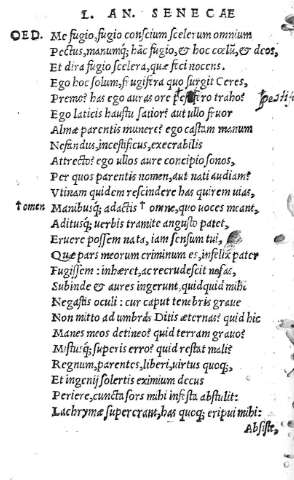 L. AN. SENECAE
OED. Me fugio, fugio conscium scelerum omnium
Pectus, manumq; hãc fugio, & hoc coelũ, & deos,
Et dira fugio scelera, quæ feci nocens.
Ego hoc solum, frugifera quo surgit Ceres,
Premo? has ego auras ore pestifero traho?
Ego laticis haustu satior? aut ullo fruor
Almæ parentis munere? ego castam manum
Nefandus, incestificus, execrabilis
Attrecto? ego ullos aure concipio sonos,
Per quos parentis nomen, aut nati audiam?
Vtinam quidem rescindere has quirem uias,
†omen Manibusq; adactis † omne, quo uoces meant,
Aditusq; uerbis tramite angusto patet,
Eruere possem nata, iam sensum tui,
Quæ pars meorum criminum es, infelix pater
Fugissem: inhæret, ac recrudescit nefas,
Subinde & aures ingerunt, quidquid mihi
Negastis oculi: cur caput tenebris graue
Non mitto ad umbras Ditis æternas? quid hic
Manes meos detineo? quid terram grauo?
Mistusq; superis erro? quid restat mali?
Regnum, parentes, liberi, uirtus quoq;,
Et ingenij solertis eximium decus
Periere, cuncta sors mihi infesta abstulit:
Lachrymæ supererant, has quoq; eripui mihi:
Absiste,